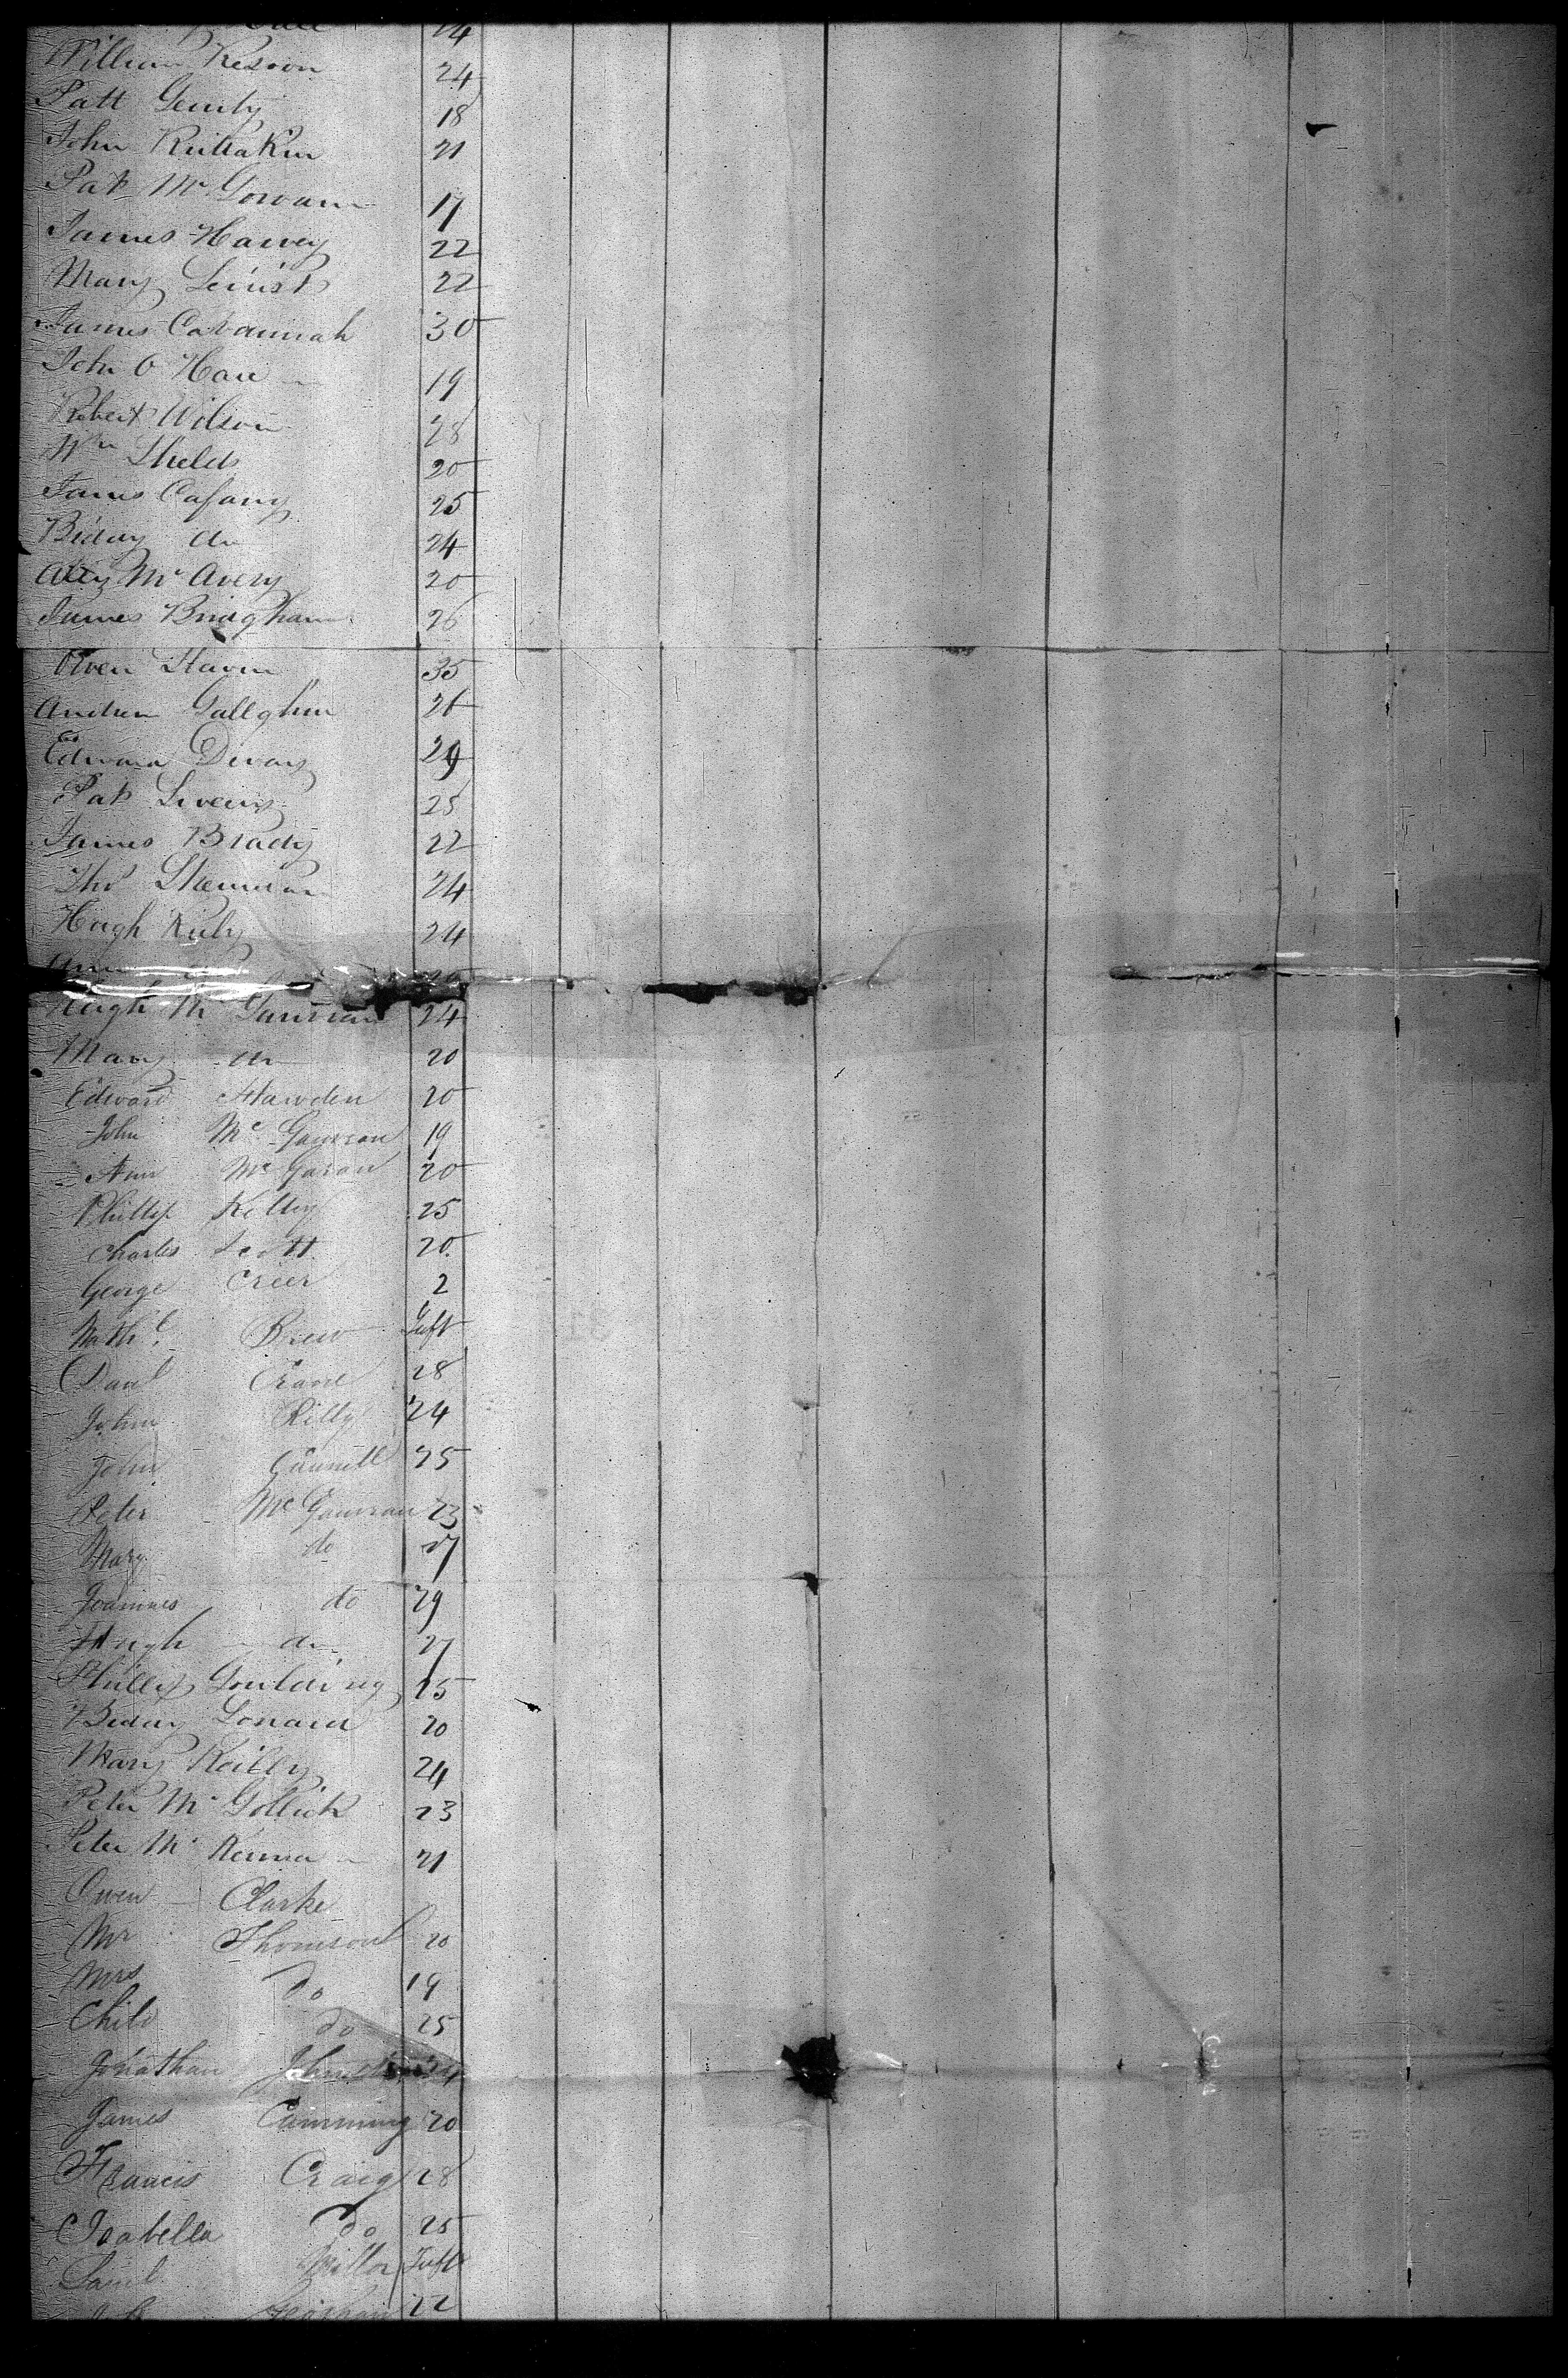 24
William Kesson 24
Patt Gernty 18
John Kuttakin 21
Pat McGowan 19
James Harvey 22
Mary 22
James Cavannah 30
John O Hare 19
Robert Wilson 28
Wm Shields 20
James Cafany 25
Biday do 24
Ally McAvery 20
James Bringham 26
Owen Slavin 35
Andrew Gallghur 26
Edward Divary 29
Pat 25
James Brady 22
Thos 24
Hugh Riely 24
Hugh Mc Gaurran 24
Mary do 20
Edward Hawden 20
John Mc Gaurran 19
Ann Mc Garan 20
Phillip Kelly 25
Charles Scott 20
George Creer 2
Nathl. Brew Inft
Danl Crane 28
John Rilly 24
John 25
Peter Mc Gaurran 23
Mary do 27
Joannes do 29
Hugh do 27
Phillip Goulding 25
Biday Lonard 20
Mary Reilly 24
Peter Mc Gollick 23
Peter Mc Kenna 21
Owen Clarke
Mr Thomson 20
Mrs Do 19
Child Do 25
Jonathan 24
James Cumming 20
Francis Craig 28
Isabella Do 25
Saml Millor Inft
22